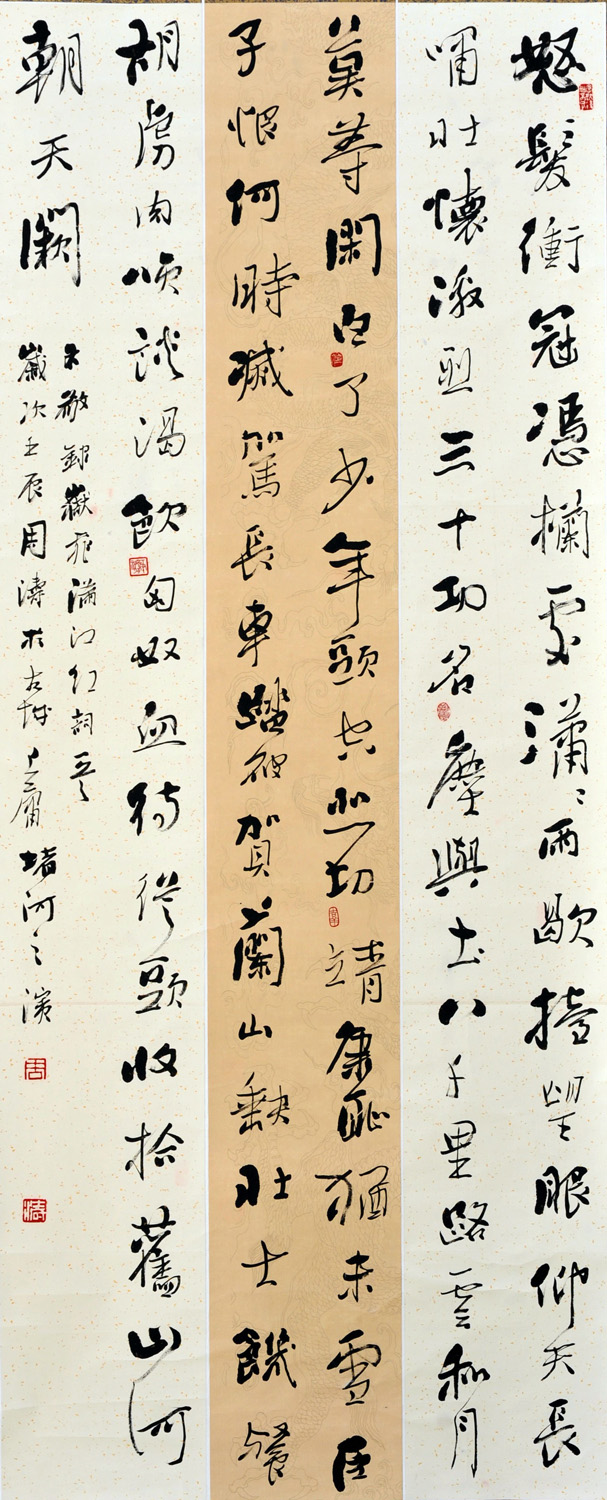 怒髮衝冠憑欄處瀟瀟雨歇擡望眼仰天長
嘯壯懷激烈三十功名塵與土八千里路雲和月
莫等閑白了少年頭空悲切靖康恥猶未雪臣
子恨何時滅駕長車踏破賀蘭山缺壯士饑餐
胡虜肉咲談渴飲匈奴血待從頭收拾舊山河
朝天闕
敬錄嶽飛滿江紅詞
歲次壬辰周濤於古城上庸堵河之濱
周
濤